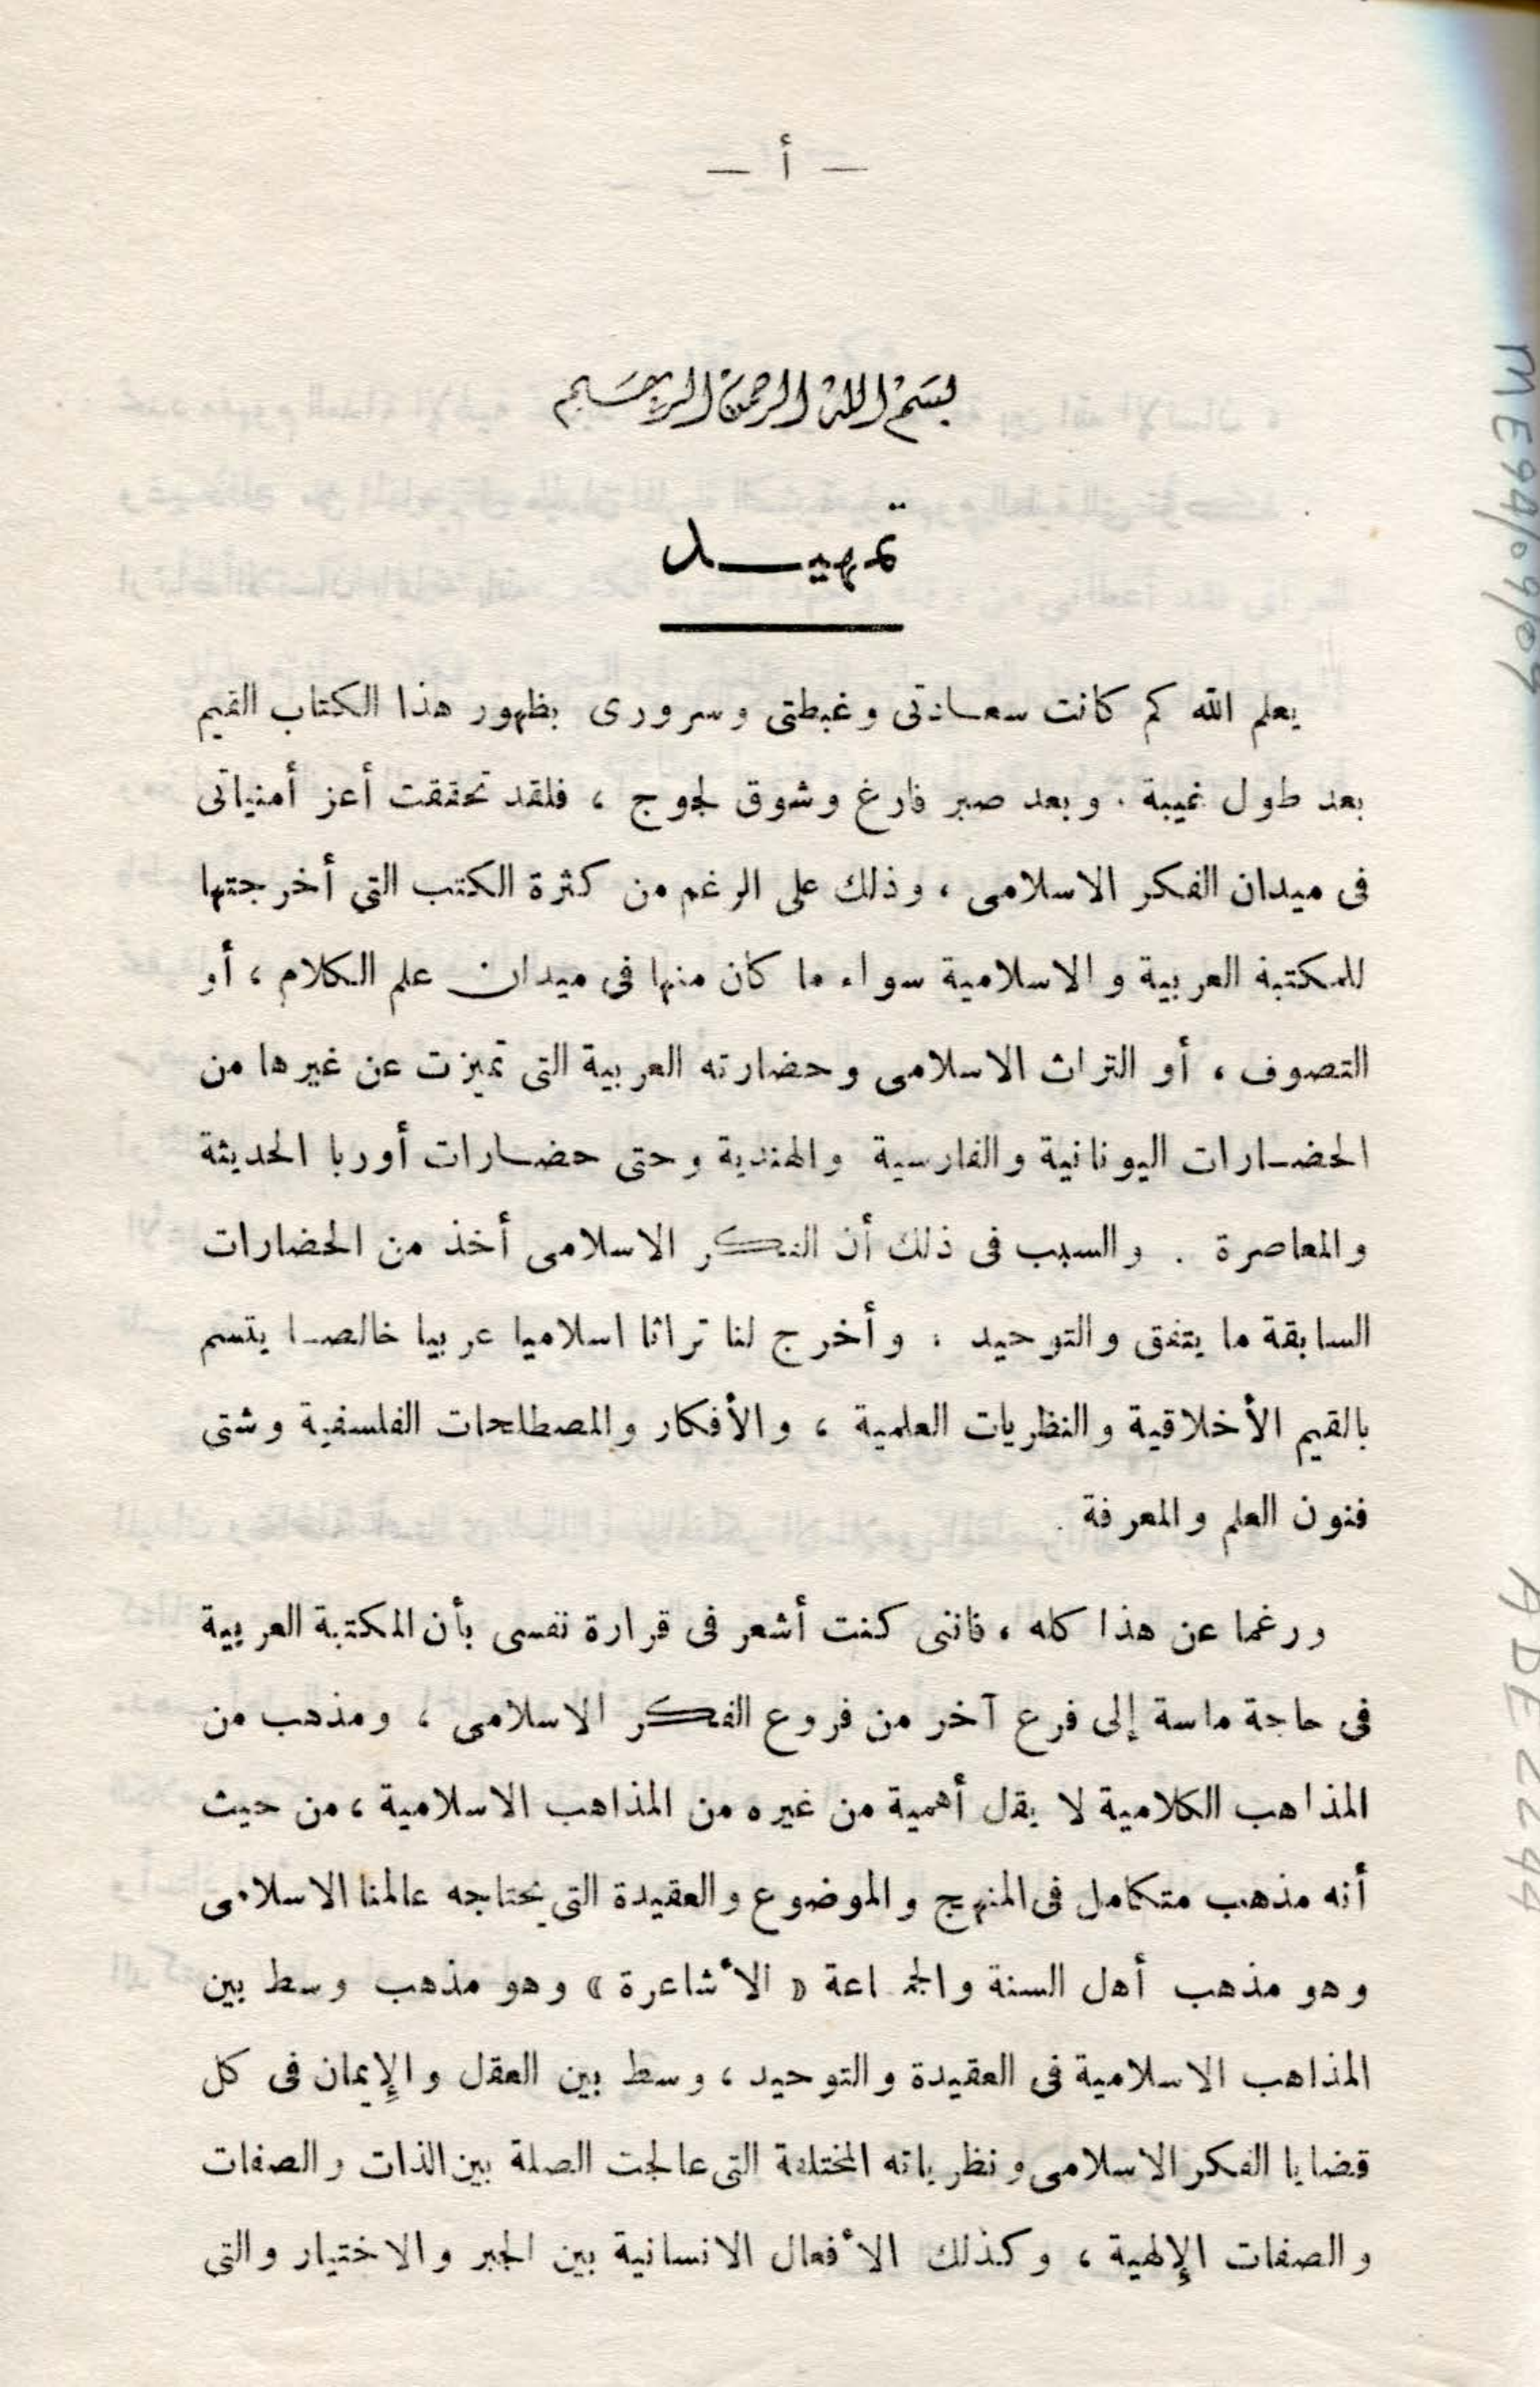 — أ —
بسم الله الرحمن الرحيم
تمهيـــد
يعلم الله كم كانت سعادتى وغبطتى وسرورى بظهور هذا الكتاب القيم
بعد طول غيبة . وبعد صبر فارغ وشوق لجوج ، فلقد تحققت أعز أمنياتى
فى ميدان الفكر الاسلامى ، وذلك على الرغم من كثرة الكتب التى أخرجتها
للمكتبة العربية والاسلامية سواء ما كان منها فى ميدان علم الكلام ، أو
التصوف ، أو التراث الاسلامى وحضارته العربية التى تميزت عن غيرها من
الحضارات اليونانية والفارسية والهندية وحتى حضارات أوربا الحديثة
والمعاصرة . والسبب فى ذلك أن الفكر الاسلامى أخذ من الحضارات
السابقة ما يتفق والتوحيد ، وأخرج لنا تراثا اسلاميا عربيا خالصا يتسم
بالقيم الأخلاقية والنظريات العلمية ، والأفكار والمصطلحات الفلسفية وشتى
فنون العلم والمعرفة .
ورغما عن هذا كله ، فاننى كنت أشعر فى قرارة نفسى بأن المكتبة العربية
فى حاجة ماسة إلى فرع آخر من فروع الفكر الاسلامى ، ومذهب من
المذاهب الكلامية لا يقل أهمية من غيره من المذاهب الاسلامية ، من حيث
أنه مذهب متكامل فى المنهج والموضوع والعقيدة التى يحتاجه عالمنا الاسلامى
وهو مذهب أهل السنة والجماعة « الأشاعرة » وهو مذهب وسط بين
المذاهب الاسلامية فى العقيدة والتوحيد ، وسط بين العقل والإيمان فى كل
قضايا الفكر الاسلامى ونظرياته المختلفة التى عالجت الصلة بين الذات والصفات
والصفات الإلهية ، وكذلك الأفعال الانسانية بين الجبر والاختيار والتى
ME94/04/07
ADE2244